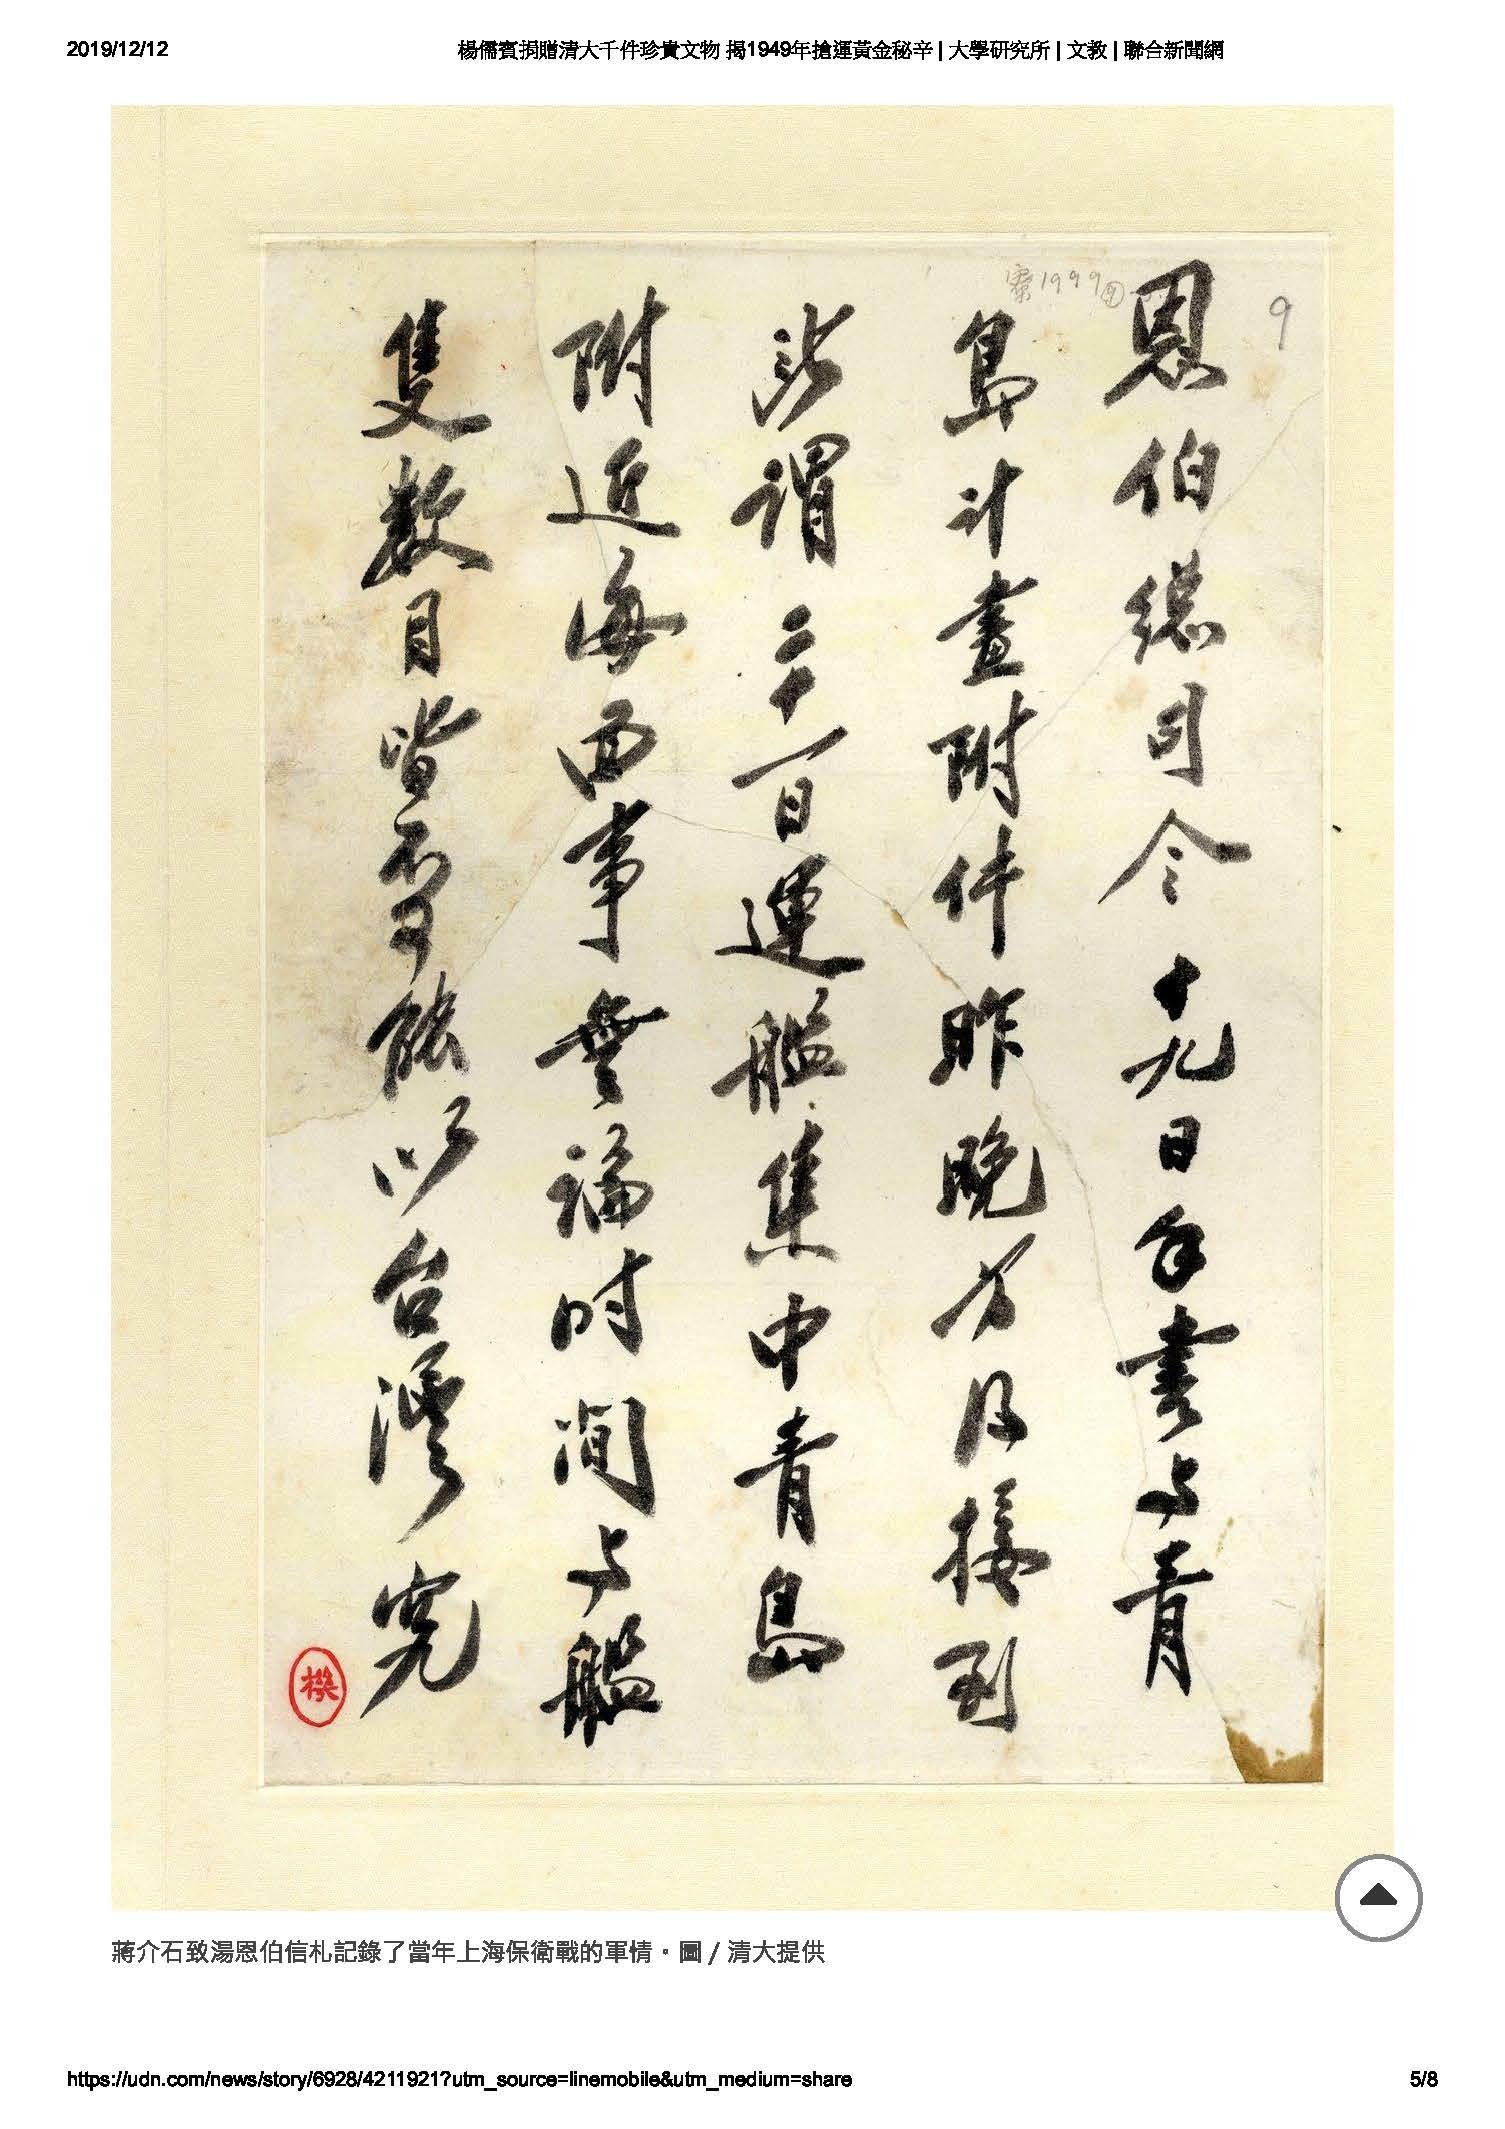 2019/12/12
楊儒賓捐贈清大千件珍貴文物 揭1949年搶運黃金秘辛 | 大學研究所 | 文教 | 聯合新聞網
9
1999
恩伯總司令十九日手書与青
島計畫附件昨晚方及接到
所謂二十一日運艦集中青島
附近海面事無論时间与艦
隻數目皆不可能以台灣究
蔣介石致湯恩伯信札記錄了當年上海保衛戰的軍情。圖/清大提供
https://udn.com/news/story/6928/4211921?utm_source=linemobile&utm_medium=share
5/8